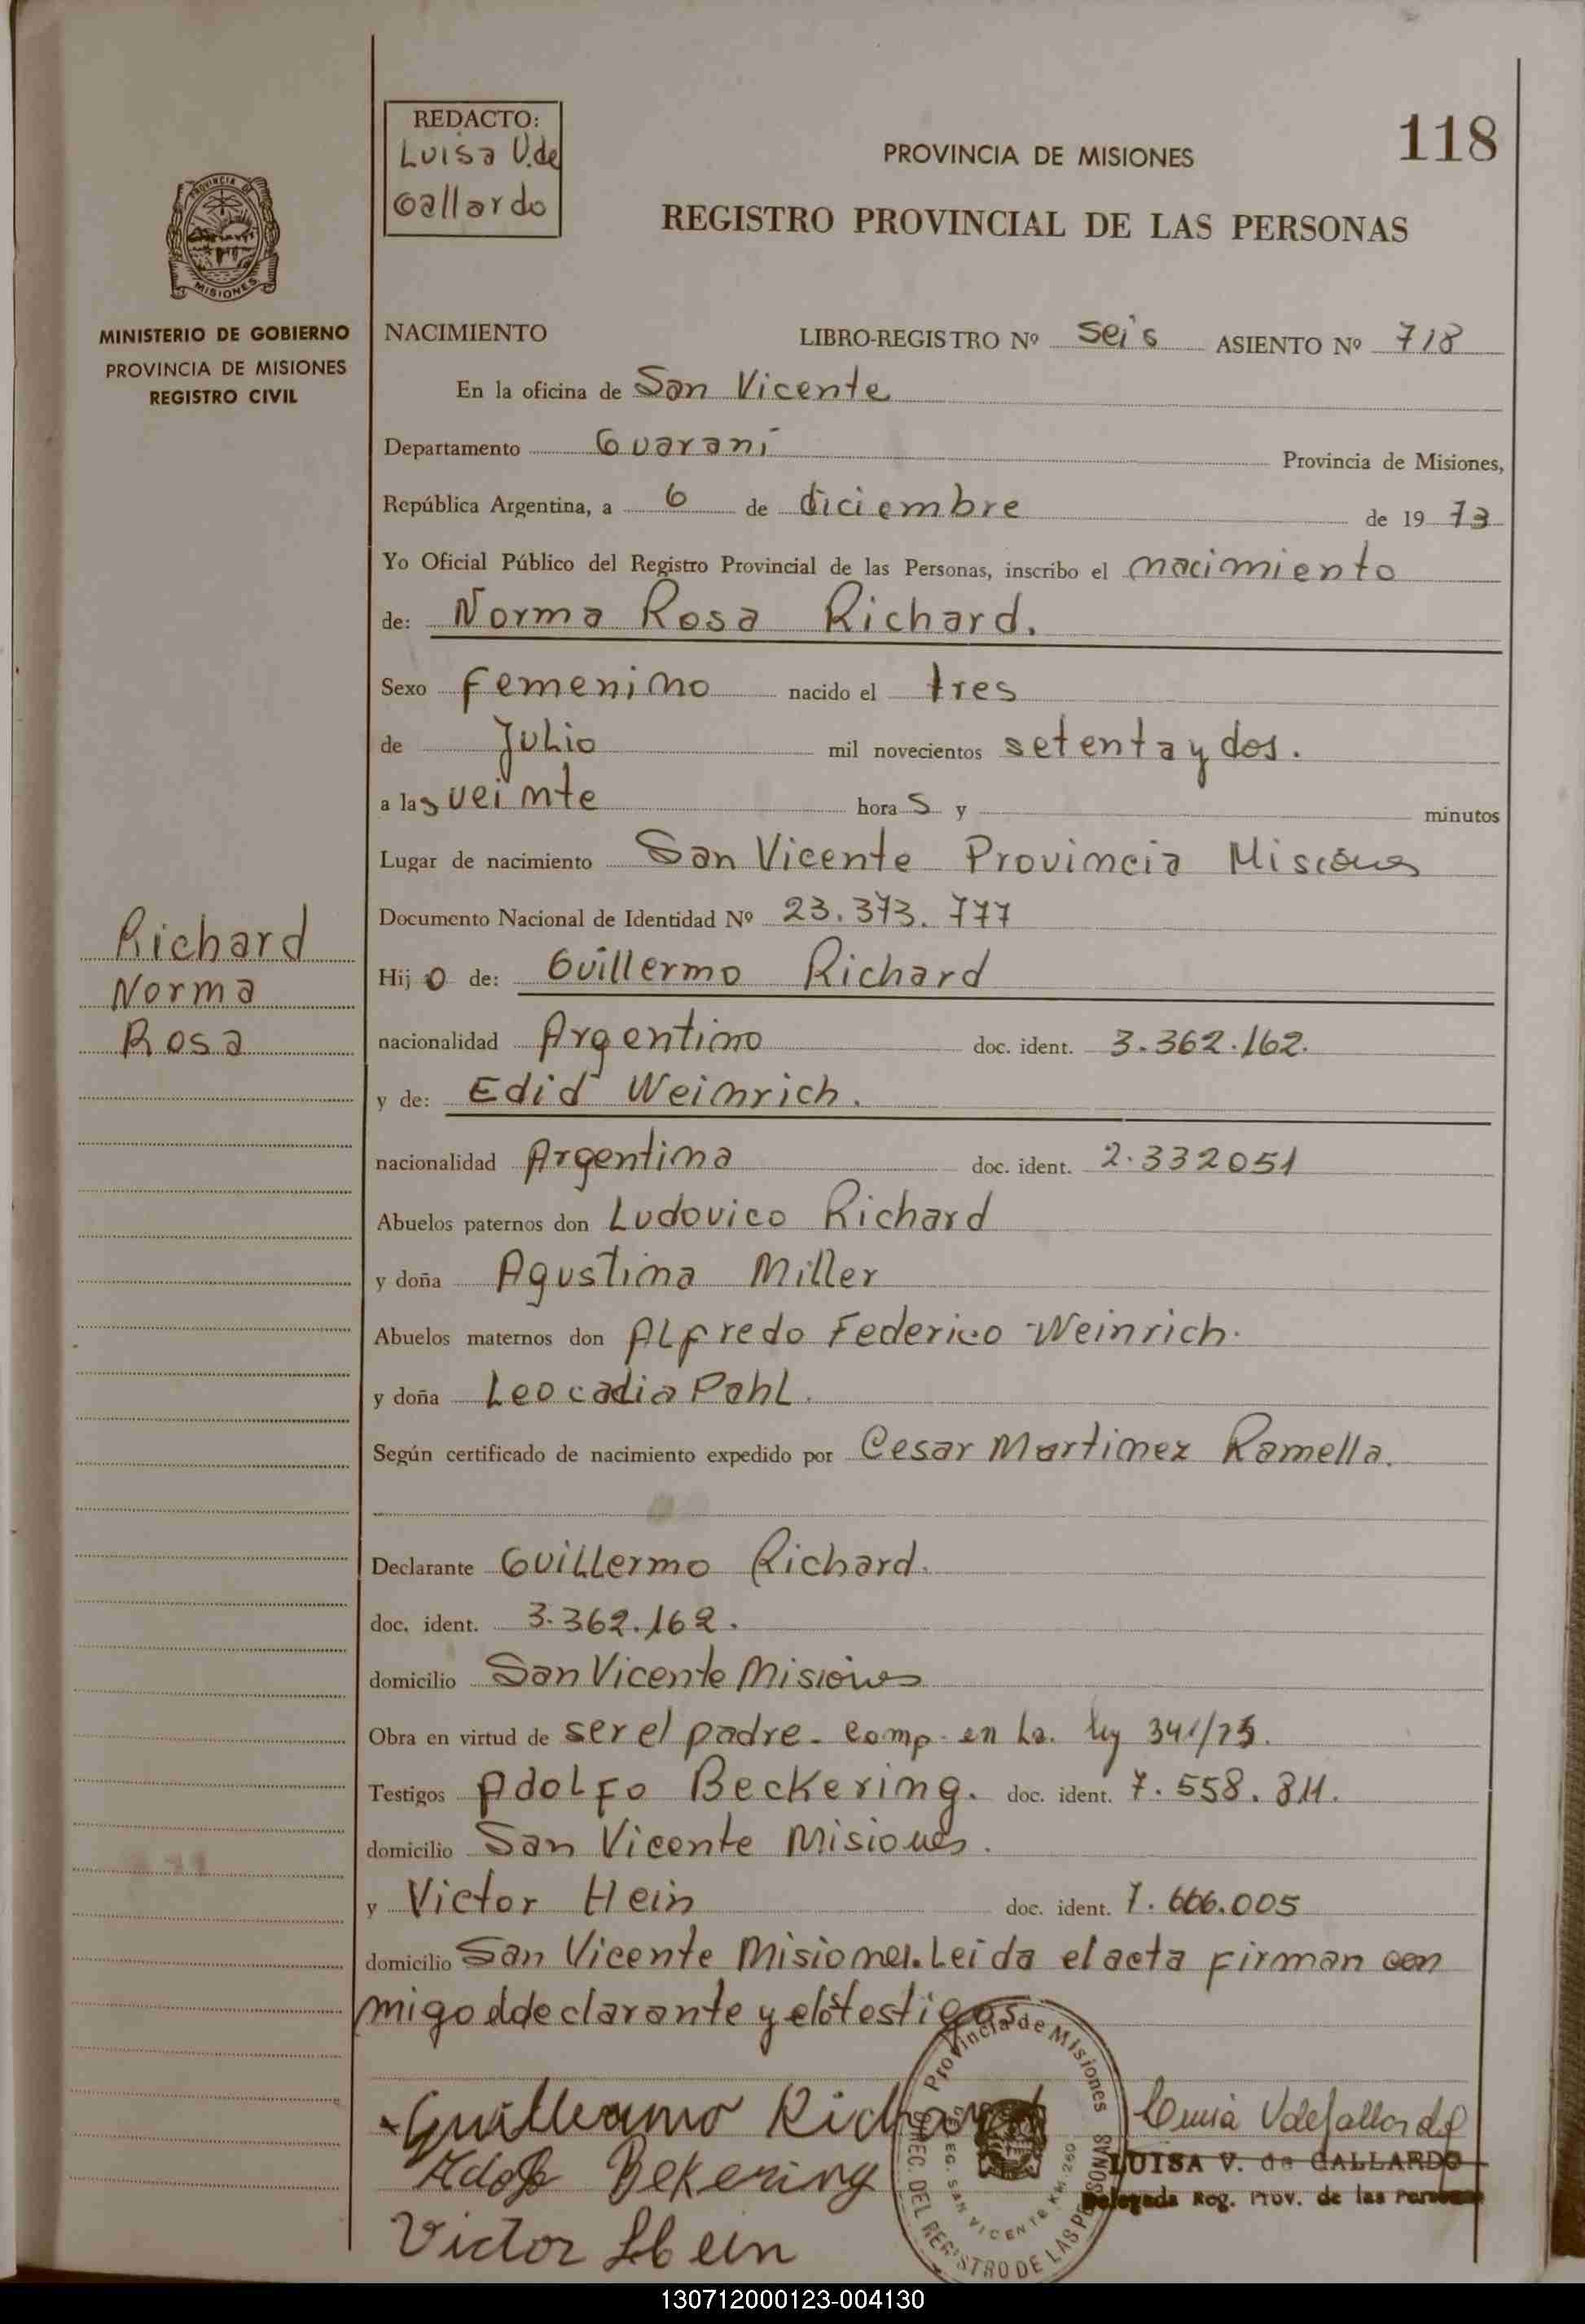 REDACTO:
Luisa V. de
Gallardo
118
PROVINCIA DE MISIONES
REGISTRO PROVINCIAL DE LAS PERSONAS
PROVINCIA DE
MISIONES
MINISTERIO DE GOBIERNO
PROVINCIA DE MISIONES
REGISTRO CIVIL
NACIMIENTO LIBRO-REGISTRO Nº Seis ASIENTO Nº 718
En la oficina de San Vicente
Departamento Guaraní Provincia de Misiones,
República Argentina, a 6 de diciembre de 1973
Yo Oficial Público del Registro Provincial de las Personas, inscribo el nacimiento
de: Norma Rosa Richard.
Sexo femenino nacido el tres
de Julio mil novecientos setenta y dos.
a las veinte horas y minutos
Lugar de nacimiento San Vicente Provincia Misiones
Documento Nacional de Identidad Nº 23.373.777
Richard
Norma
Rosa
Hijo de: Guillermo Richard
nacionalidad Argentino doc. ident. 3.362.162.
y de: Edid Weinrich.
nacionalidad Argentina doc. ident. 2.332051
Abuelos paternos don Ludovico Richard
y doña Agustina Miller
Abuelos maternos don Alfredo Federico Weinrich.
y doña Leocadia Pohl.
Según certificado de nacimiento expedido por Cesar Martinez Ramella.
Declarante Guillermo Richard.
doc. ident. 3.362.162.
domicilio San Vicente Misiones
Obra en virtud de ser el padre. comp. en la. ley 341/73.
Testigos Adolfo Beckering. doc. ident. 7.558.811.
domicilio San Vicente Misiones.
y Victor Hein doc. ident. 7.666.005
domicilio San Vicente Misiones. Leida el acta firman con
migo el declarante y los testigos
Guillermo Richard
Luisa V de Gallardo
Provincia de Misiones
DEL REGISTRO DE LAS PERSONAS
SAN VICENTE KM. 260
LUISA V. de GALLARDO
Delegada Reg. Prov. de las Personas
Adolfo Bekering
Victor Hein
130712000123-004130